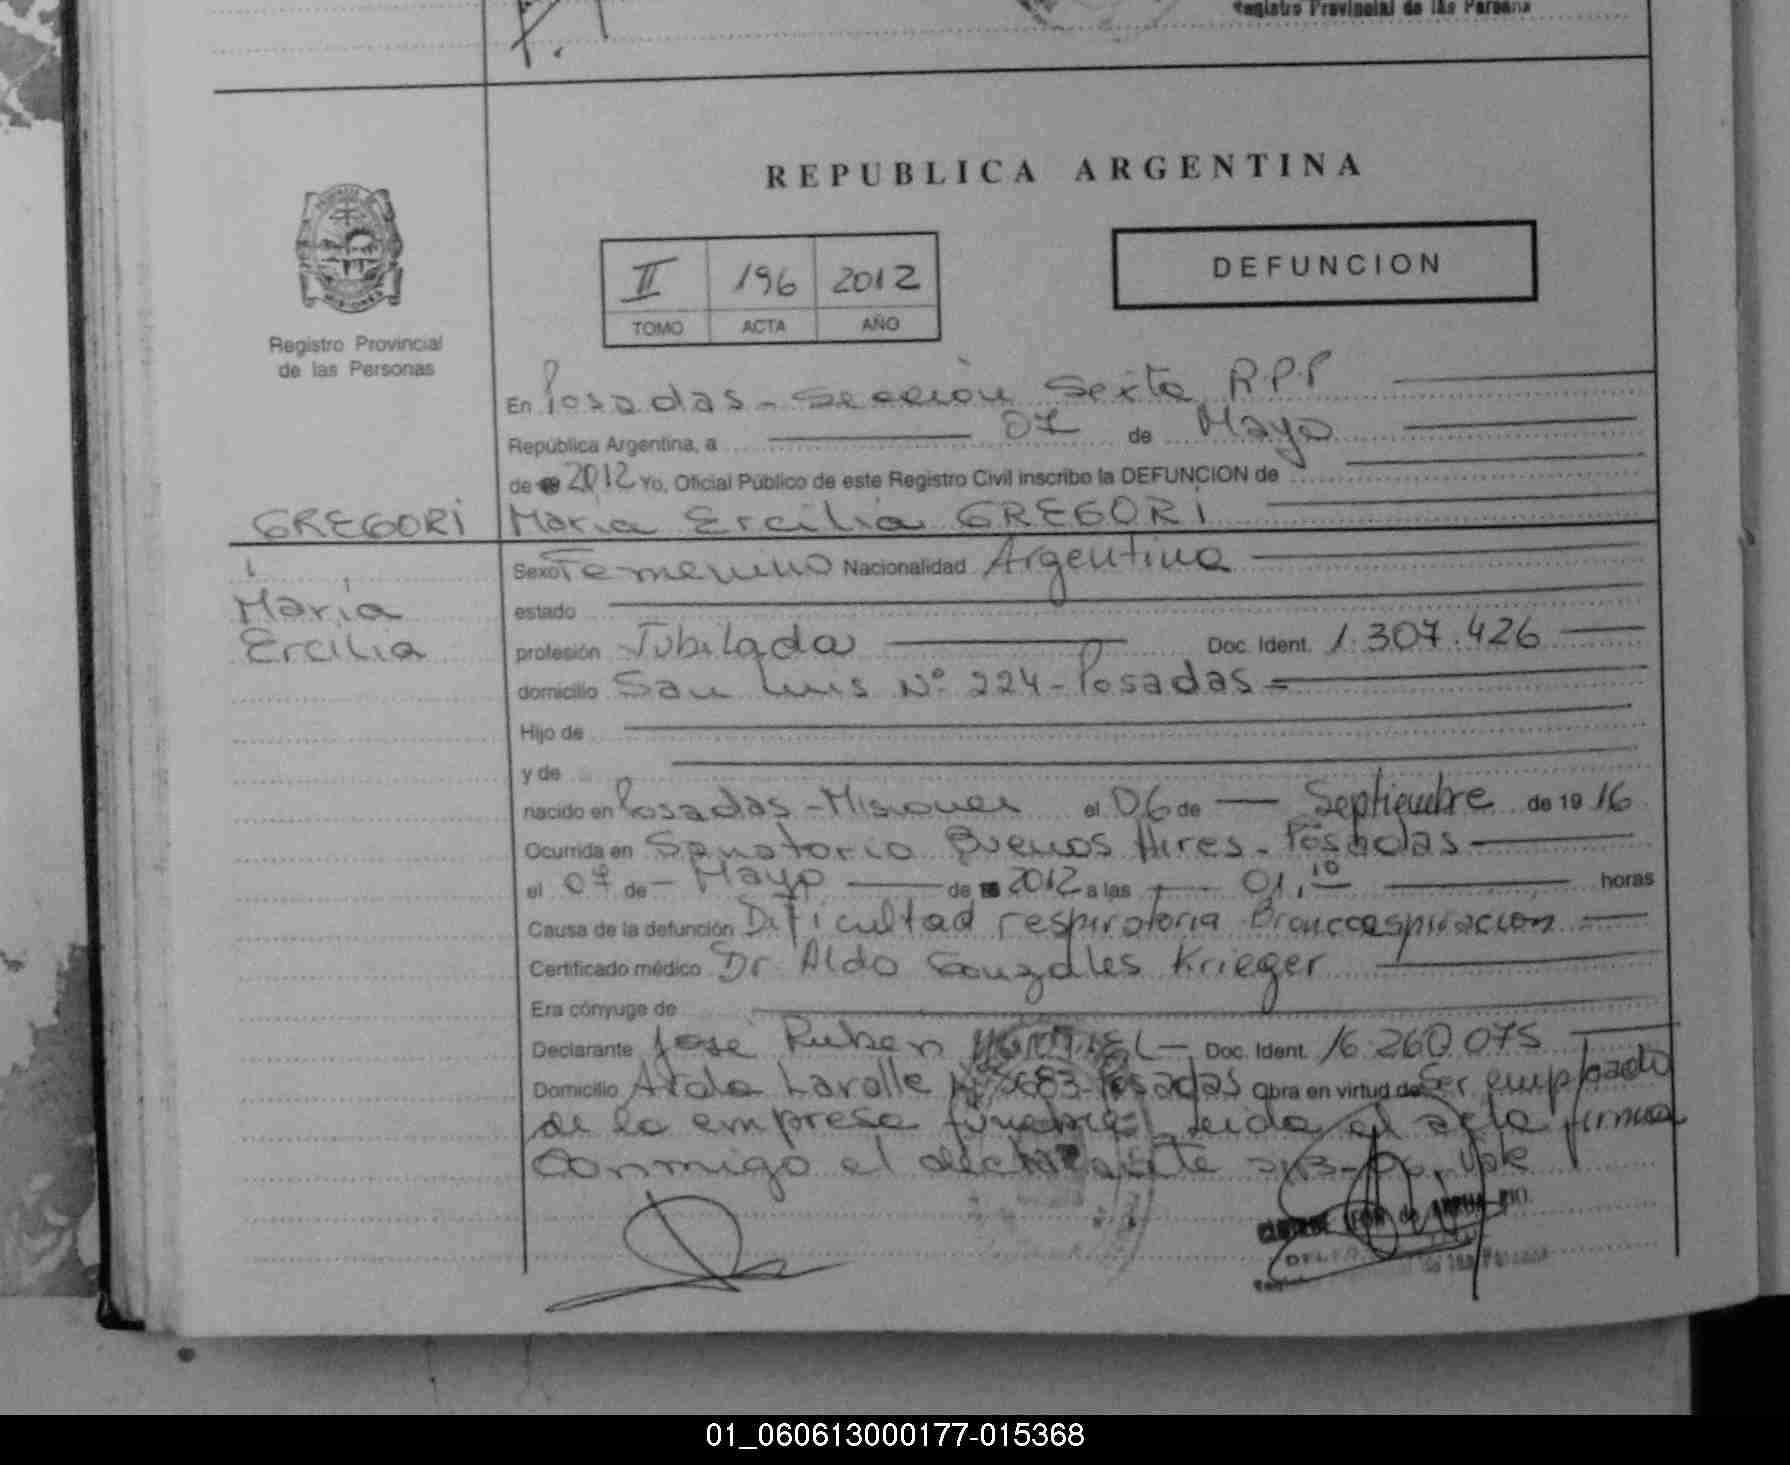 Registro Provincial de las Persona
REPUBLICA ARGENTINA
II 196 2012
TOMO ACTA AÑO
DEFUNCION
Registro Provincial
de las Personas
En Posadas - Sección Sexta R.P.P
República Argentina, a 07 de Mayo
de 2012 Yo, Oficial Público de este Registro Civil inscribo la DEFUNCION de
GREGORI
María Ercilia GREGORI
María
Ercilia
Sexo Femenino Nacionalidad Argentina
estado
profesión Jubilada Doc. Ident. 1.307.426
domicilio San Luis Nº 224 - Posadas =
Hijo de
y de
nacido en Posadas - Misiones el 06 de Septiembre de 19 16
Ocurrida en Sanatorio Buenos Aires - Posadas
el 07 de Mayo de 2012 a las 01,10 horas
Causa de la defunción Dificultad respiratoria Broncoaspiracion
Certificado médico Dr Aldo Gonzales Krieger
Era cónyuge de
Declarante José Ruben Doc. Ident. 16.260.075
Domicilio Avda Lavalle Posadas Obra en virtud de Ser empleado
de la empresa funebre leida el acta firma
conmigo el declarante
LEON de
de las Persona
01_060613000177-015368